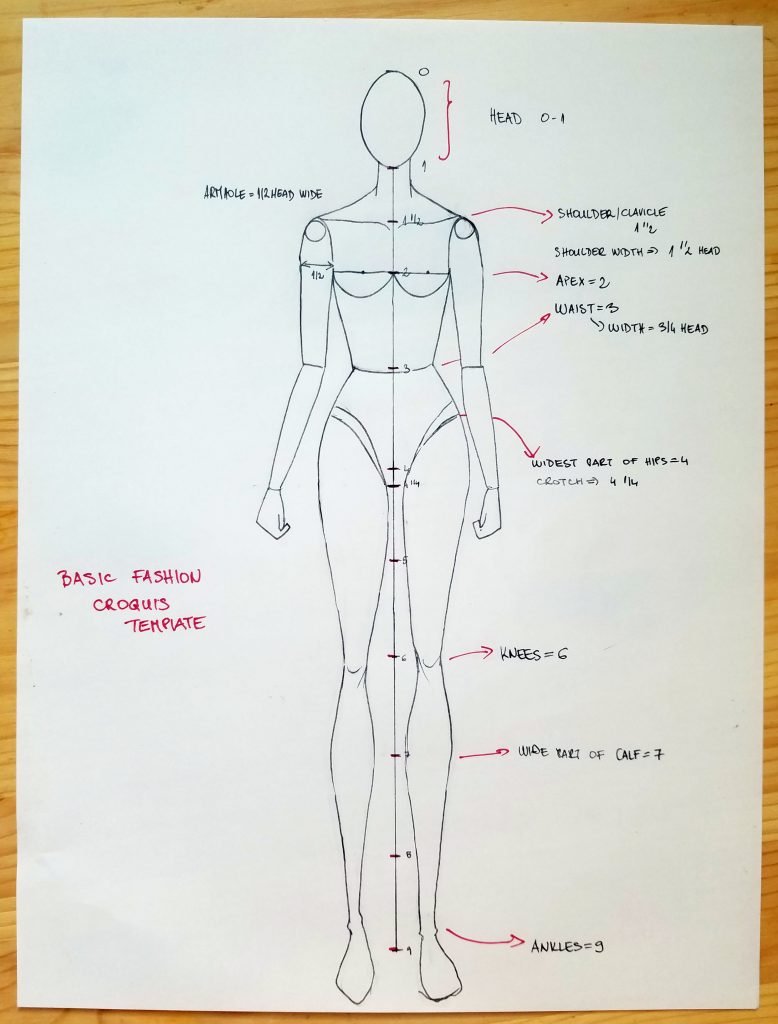 0
HEAD 0-1
1
ARMHOLE = 1/2 HEAD WIDE
SHOULDER/CLAVICLE
1 1/2
1 1/2
SHOULDER WIDTH => 1 1/2 HEAD
1/2
2
APEX = 2
WAIST = 3
WIDTH = 3/4 HEAD
3
4
WIDEST PART OF HIPS = 4
4 1/4
CROTCH => 4 1/4
5
BASIC FASHION
CROQUIS
TEMPLATE
6
KNEES = 6
7
WIDE PART OF CALF = 7
8
9
ANKLES = 9